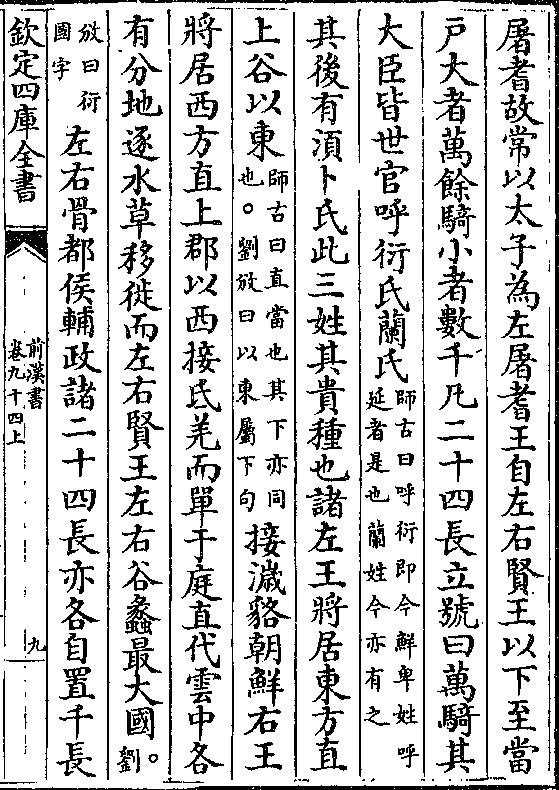 屠耆故常以太子為左屠耆王自左右賢王以下至當
戸大者萬餘騎小者數千凡二十四長立號曰萬騎其
大臣皆世官呼衍氏蘭氏師古曰呼衍即今鮮卑姓呼延者是也蘭姓今亦有之
其後有須卜氏此三姓其貴種也諸左王將居東方直
上谷以東師古曰直當也其下亦同也。劉攽曰以東屬下句接濊貉朝鮮右王
將居西方直上郡以西接氐羌而單于庭直代雲中各
有分地逐水草移徙而左右賢王左右谷蠡最大國。劉
攽曰衍國字左右骨都侯輔政諸二十四長亦各自置千長
欽定四庫全書
前漢書
卷九十四上
九